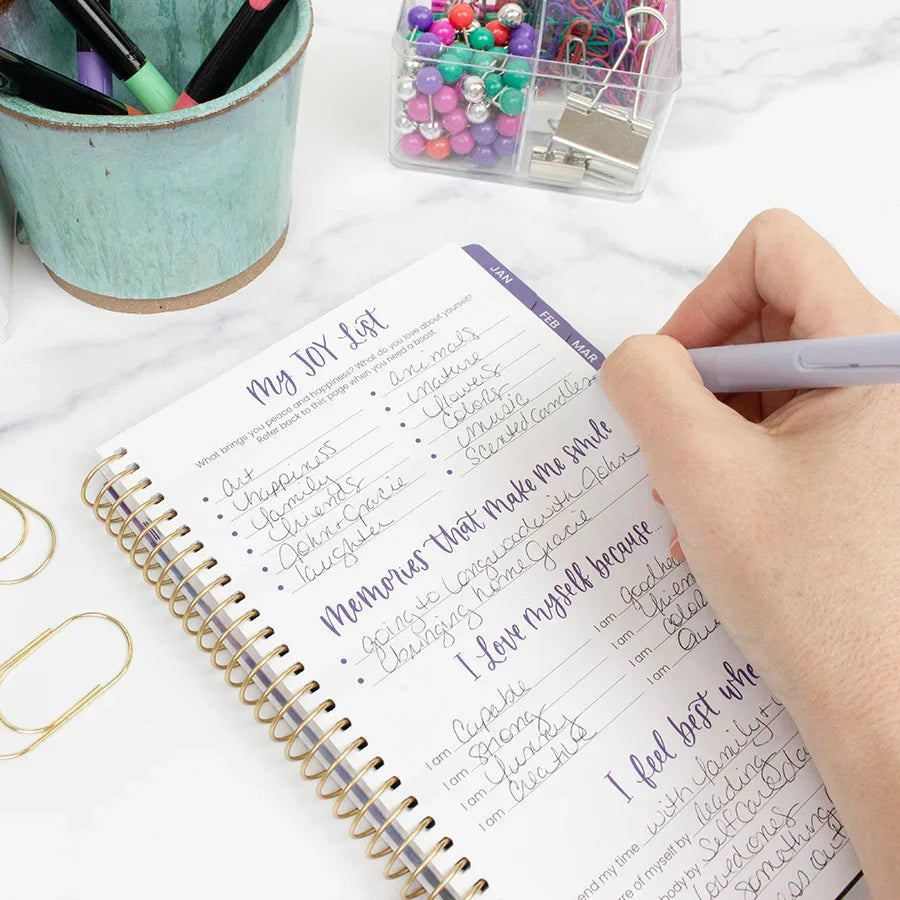 JAN
FEB
MAR
My JOY List
What brings you peace and happiness? What do you love about yourself?
Refer back to this page when you need a boost.
art
happiness
family
friends
John + Gracie
laughter
animals
nature
flowers
colors
music
scented candles
Memories that make me smile
going to Longwood with John
bringing home Gracie
I love myself because...
I am capable
I am strong
I am funny
I am creative
I am good
I am
I am
I am
I feel best whe
end my time with family +
are of myself by reading
body by selfcare da
loved ones
something